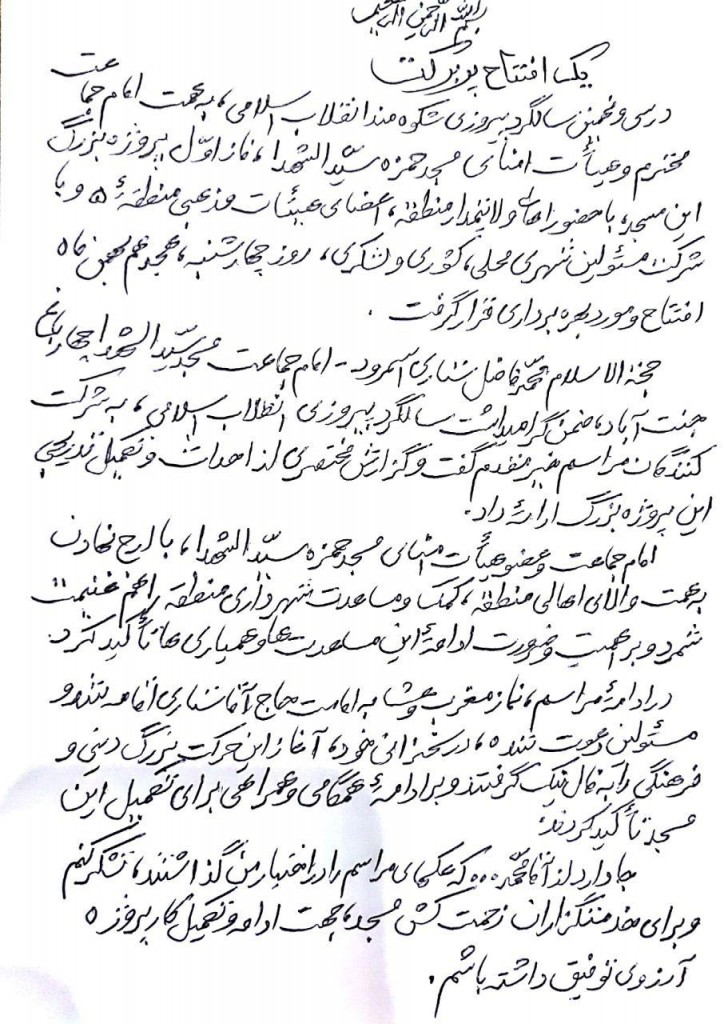 بسم الله الرحمن الرحیم
یک افتتاح پر برکت
در سی و نهمین سالگرد پیروزی شکوه مند انقلاب اسلامی، به همت امام جماعت
محترم و هیأت امنای مسجد حمزه سیّد الشهدا، فاز اوّل پروژه بزرگ
این مسجد، با حضور اهالی ولایتمدار منطقه، اعضای هیئات مذهبی منطقهٔ ۵ و با
شرکت مسئولین شهری محلی، کشوری و لشکری، روز چهارشنبه، هجدهم بهمن ماه
افتتاح و مورد بهره برداری قرار گرفت.
حجة الاسلام محمّد فاضل نثاری اسمرود - امام جماعت مسجد سیّد الشهدا چهارباغ
جنت آباد، ضمن گرامیداشت سالگرد پیروزی انقلاب اسلامی، به شرکت
کنندگان مراسم خیر مقدم گفت و گزارش مختصری از احداث و تکمیل تدریجی
این پروژه بزرگ ارائه داد.
امام جماعت و عضو هیأت امنای مسجد حمزه سیّد الشهدا، با ارج نهادن
به همت والای اهالی منطقه، کمک و مساعدت شهرداری منطقه را هم غنیمت
شمرد و بر اهمیت و ضرورت ادامهٔ این مساعدت ها و همیاری ها تأکید کرد.
در ادامهٔ مراسم، نماز مغرب و عشا به امامت حاج آقا نثاری اقامه شد و
مسئولین دعوت شده، در سخنرانی خود، آغاز این حرکت بزرگ دینی و
فرهنگی را به فال نیک گرفتند و بر ادامهٔ همگامی و همراهی برای تکمیل این
مسجد تأکید کردند.
جا دارد از آقا محمّد... که عکسهای مراسم را در اختیار من گذاشتند، تشکر کنم
و برای خدمتگزاران زحمت کش مسجد، جهت ادامه و تکمیل کار پروژه
آرزوی توفیق داشته باشم.